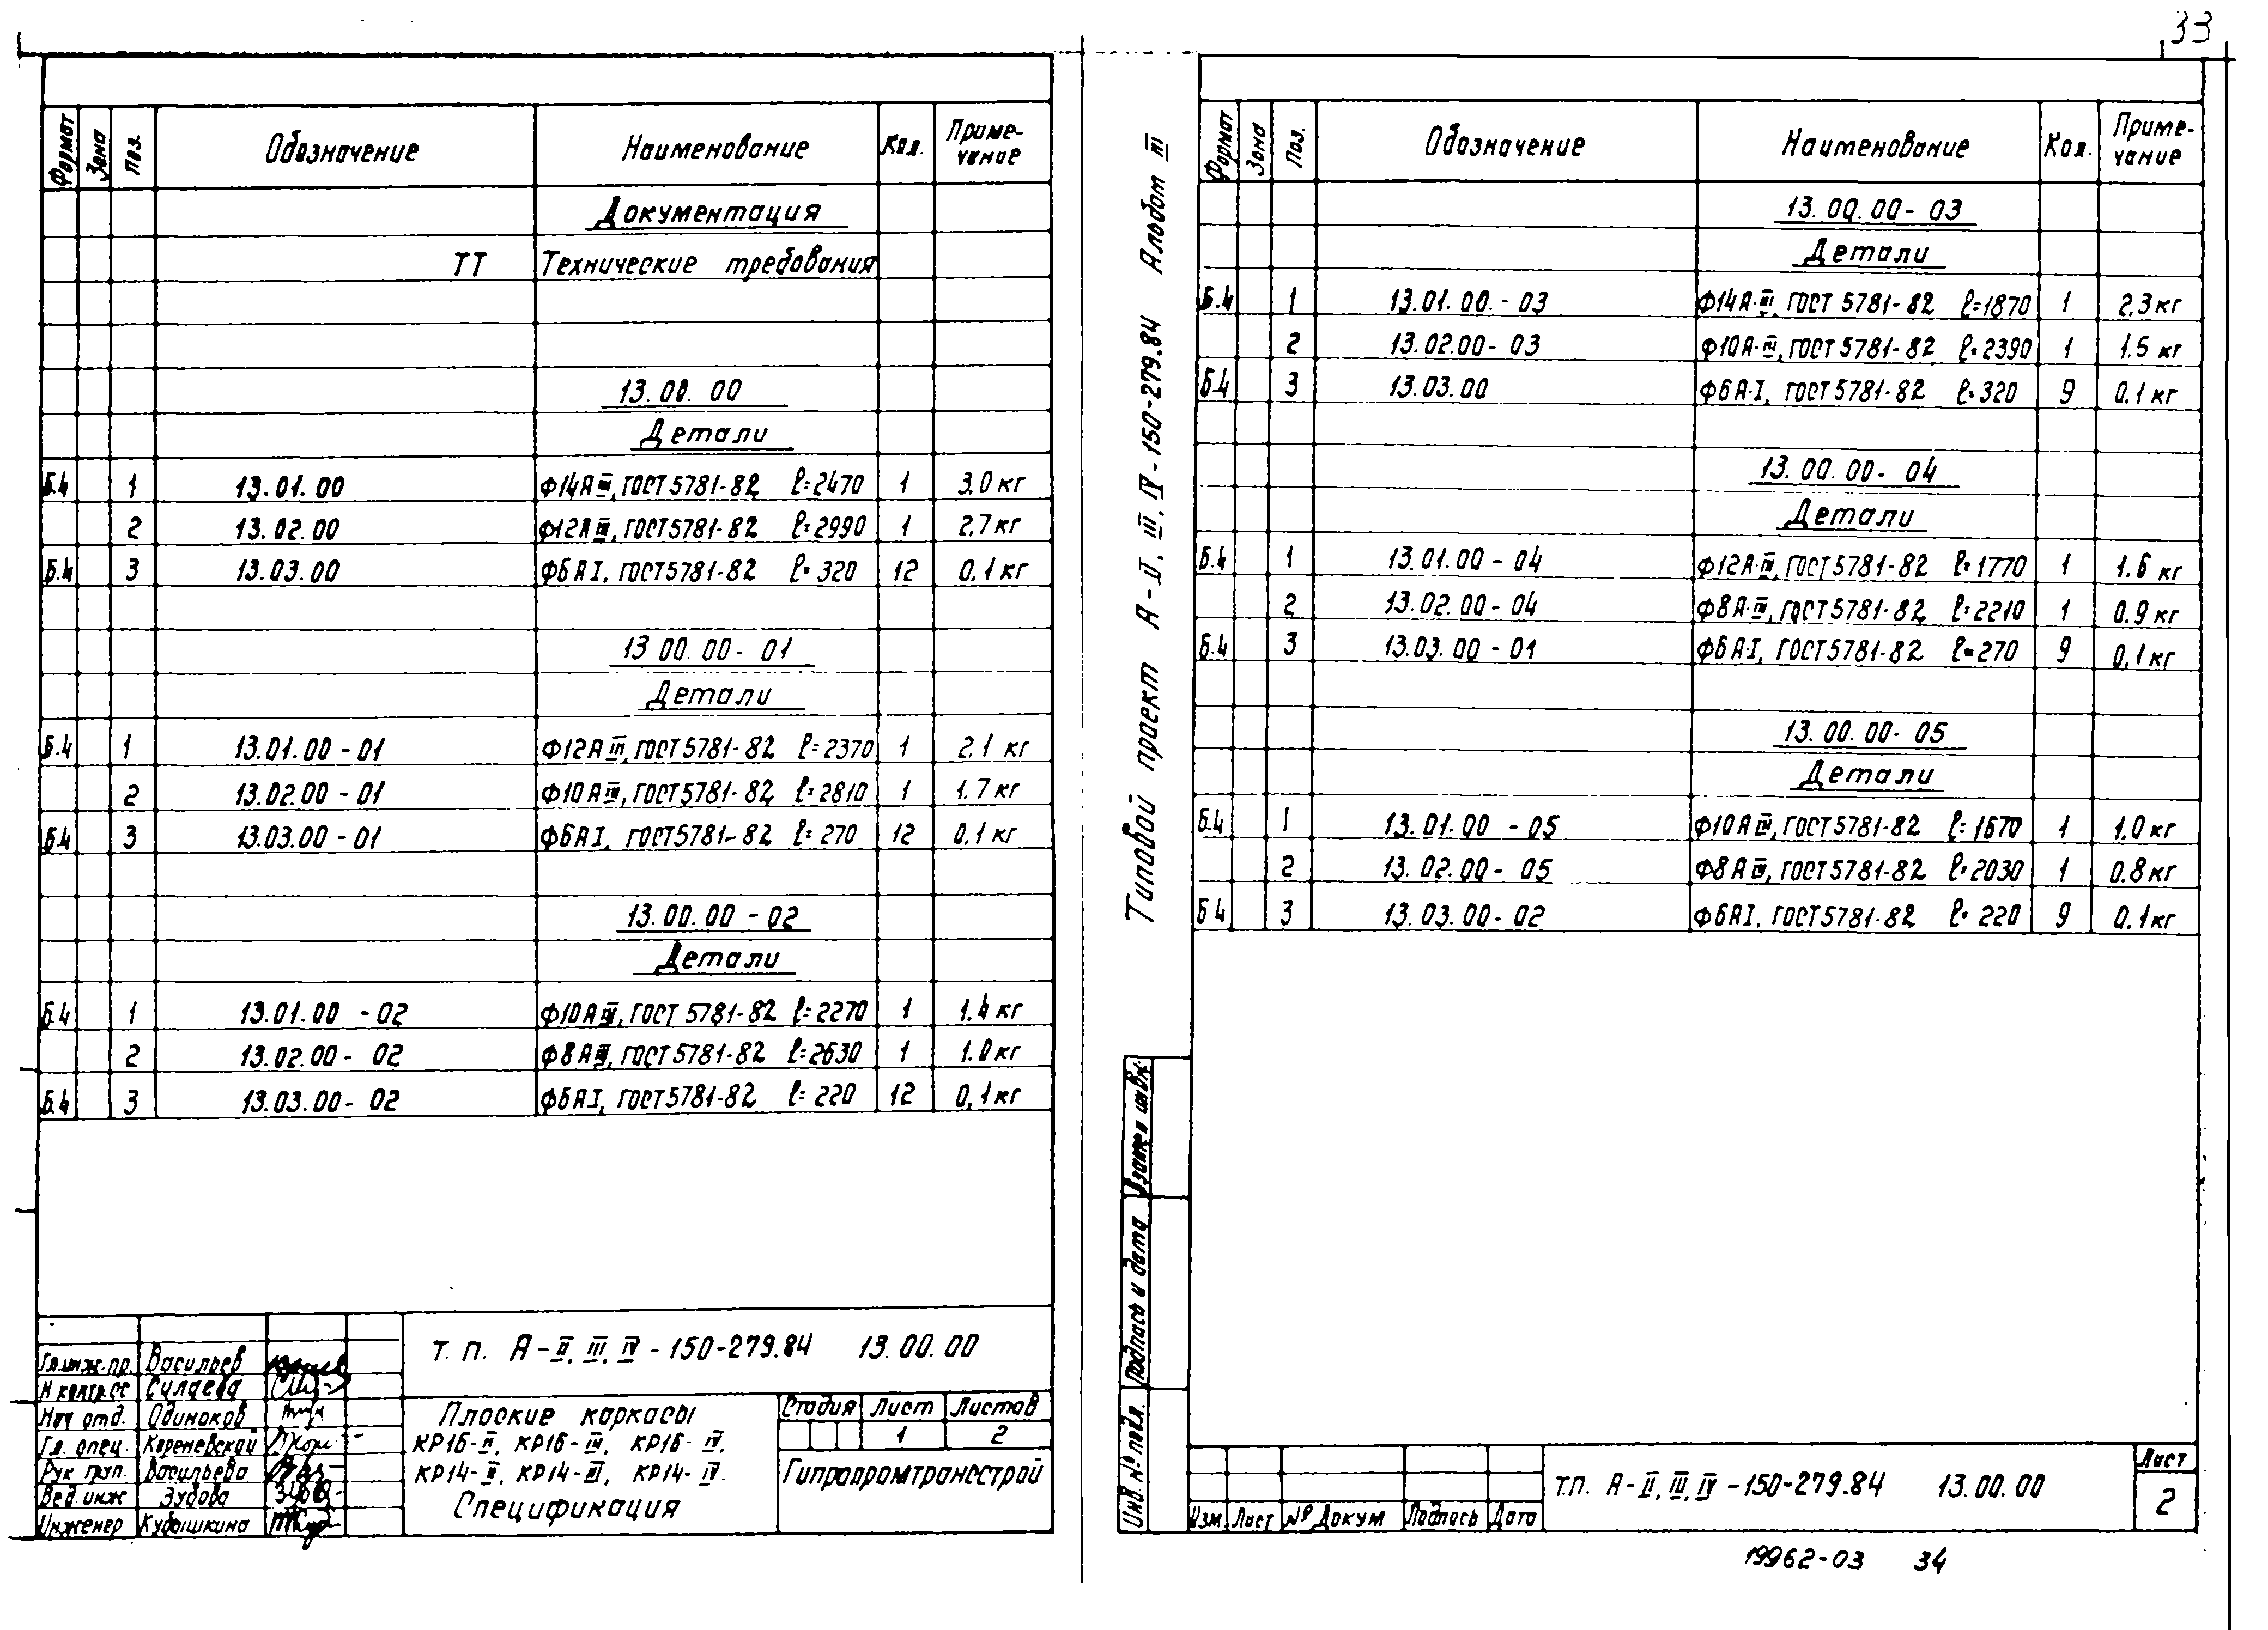 33
Формат Зона Поз. Обозначение Наименование Кол. Приме-
чание
Документация
ТТ Технические требования
13.00.00
Детали
Б.4 1 13.01.00 Ф14АIII, ГОСТ 5781-82 ℓ=2470 1 3.0 кг
2 13.02.00 Ф12АIII, ГОСТ 5781-82 ℓ=2990 1 2,7 кг
Б.4 3 13.03.00 Ф6АI, ГОСТ 5781-82 ℓ=320 12 0,1 кг
13 00.00-01
Детали
Б.4 1 13.01.00-01 Ф12АIII, ГОСТ 5781-82 ℓ=2370 1 2.1 кг
2 13.02.00-01 Ф10АIII, ГОСТ 5781-82 ℓ=2810 1 1.7 кг
Б.4 3 13.03.00-01 Ф6АI, ГОСТ 5781-82 ℓ=270 12 0,1 кг
13.00.00-02
Детали
Б.4 1 13.01.00-02 Ф10АIII, ГОСТ 5781-82 ℓ=2270 1 1.4 кг
2 13.02.00-02 Ф8АIII, ГОСТ 5781-82 ℓ=2630 1 1.0 кг
Б.4 3 13.03.00-02 Ф6АI, ГОСТ 5781-82 ℓ=220 12 0,1 кг
Гл.инж.пр. Васильев
Н контр.ОС Силаева
Нач отд. Одиноков
Гл. спец. Кореневский
Рук груп. Васильева
Вед.инж Зубова
Инженер Кубышкина
т. п. А-II, III, IV-150-279.84 13.00.00
Плоские каркасы
КР16-II, КР16-III, КР16-IV,
КР14-II, КР14-III, КР14-IV.
Спецификация
Стадия Лист Листов
1 2
Гипропромтрансстрой
Типовой проект А-II, III, IV-150-279.84 Альбом III
Формат Зона Поз. Обозначение Наименование Кол. Приме-
чание
13.00.00-03
Детали
Б.4 1 13.01.00-03 Ф14А-III, ГОСТ 5781-82 ℓ=1870 1 2,3 кг
2 13.02.00-03 Ф10А-III, ГОСТ 5781-82 ℓ=2390 1 1.5 кг
Б.4 3 13.03.00 Ф6А-I, ГОСТ 5781-82 ℓ=320 9 0,1 кг
13.00.00-04
Детали
Б.4 1 13.01.00-04 Ф12А-III, ГОСТ 5781-82 ℓ=1770 1 1.6 кг
2 13.02.00-04 Ф8А-III, ГОСТ 5781-82 ℓ=2210 1 0.9 кг
Б.4 3 13.03.00-01 Ф6А-I, ГОСТ 5781-82 ℓ=270 9 0,1 кг
13.00.00-05
Детали
Б.4 1 13.01.00-05 Ф10АIII, ГОСТ 5781-82 ℓ=1670 1 1.0 кг
2 13.02.00-05 Ф8АIII, ГОСТ 5781-82 ℓ=2030 1 0.8 кг
Б 4 3 13.03.00-02 Ф6АI, ГОСТ 5781-82 ℓ=220 9 0,1 кг
Взамен инв.№
Подпись и дата
Инв. № подл.
Изм. Лист № Докум Подпись Дата
т.п. А-II, III, IV-150-279.84 13.00.00
Лист
2
19962-03 34